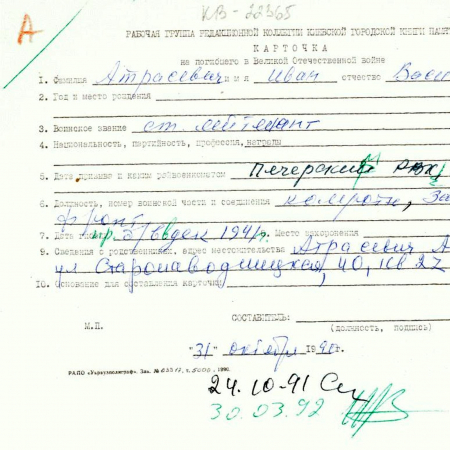 А
КВ-22365
РАБОЧАЯ ГРУППА РЕДАКЦИОННОЙ КОЛЛЕГИИ КИЕВСКОЙ ГОРОДСКОЙ КНИГИ ПАМЯ
КАРТОЧКА
на погибшего в Великой Отечественной войне
1. Фамилия Атрасевич имя Иван отчество Васи
2. Год и место рождения
3. Воинское звание ст. лейтенант
4. Национальность, партийность, профессия, награды
5. Дата призыва и каким райвоенкоматом Печерским РВК,
6. Должность, номер воинской части и соединения комроты, За
фронт
7. Дата 1941г. Место захоронения
9. Сведения о родственниках, адрес местожительства Атрасевич А
ул Старонаводницкая, 40, кв 27
10. Основание для составления карточки
СОСТАВИТЕЛЬ:
М.П. (должность, подпись)
"31" октября 1991г.
РАПО «Укрвузполиграф». Зак. 5000, 1990.
24.10-91
30.03.92